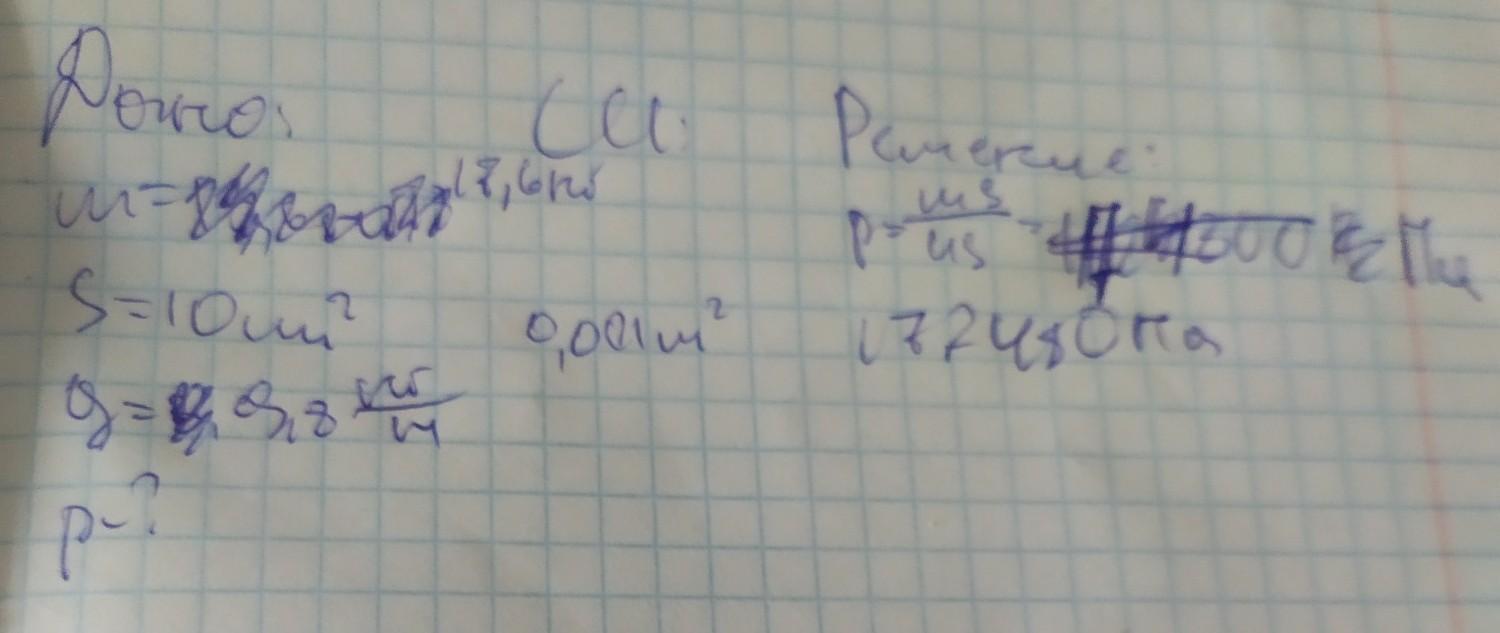 Дано:
СИ:
Решение:
m = 17,6 кг
p = mg/4S =
Па
S = 10 см²
0,001 м²
172480 Па
g = 9,8 кг/м
p - ?